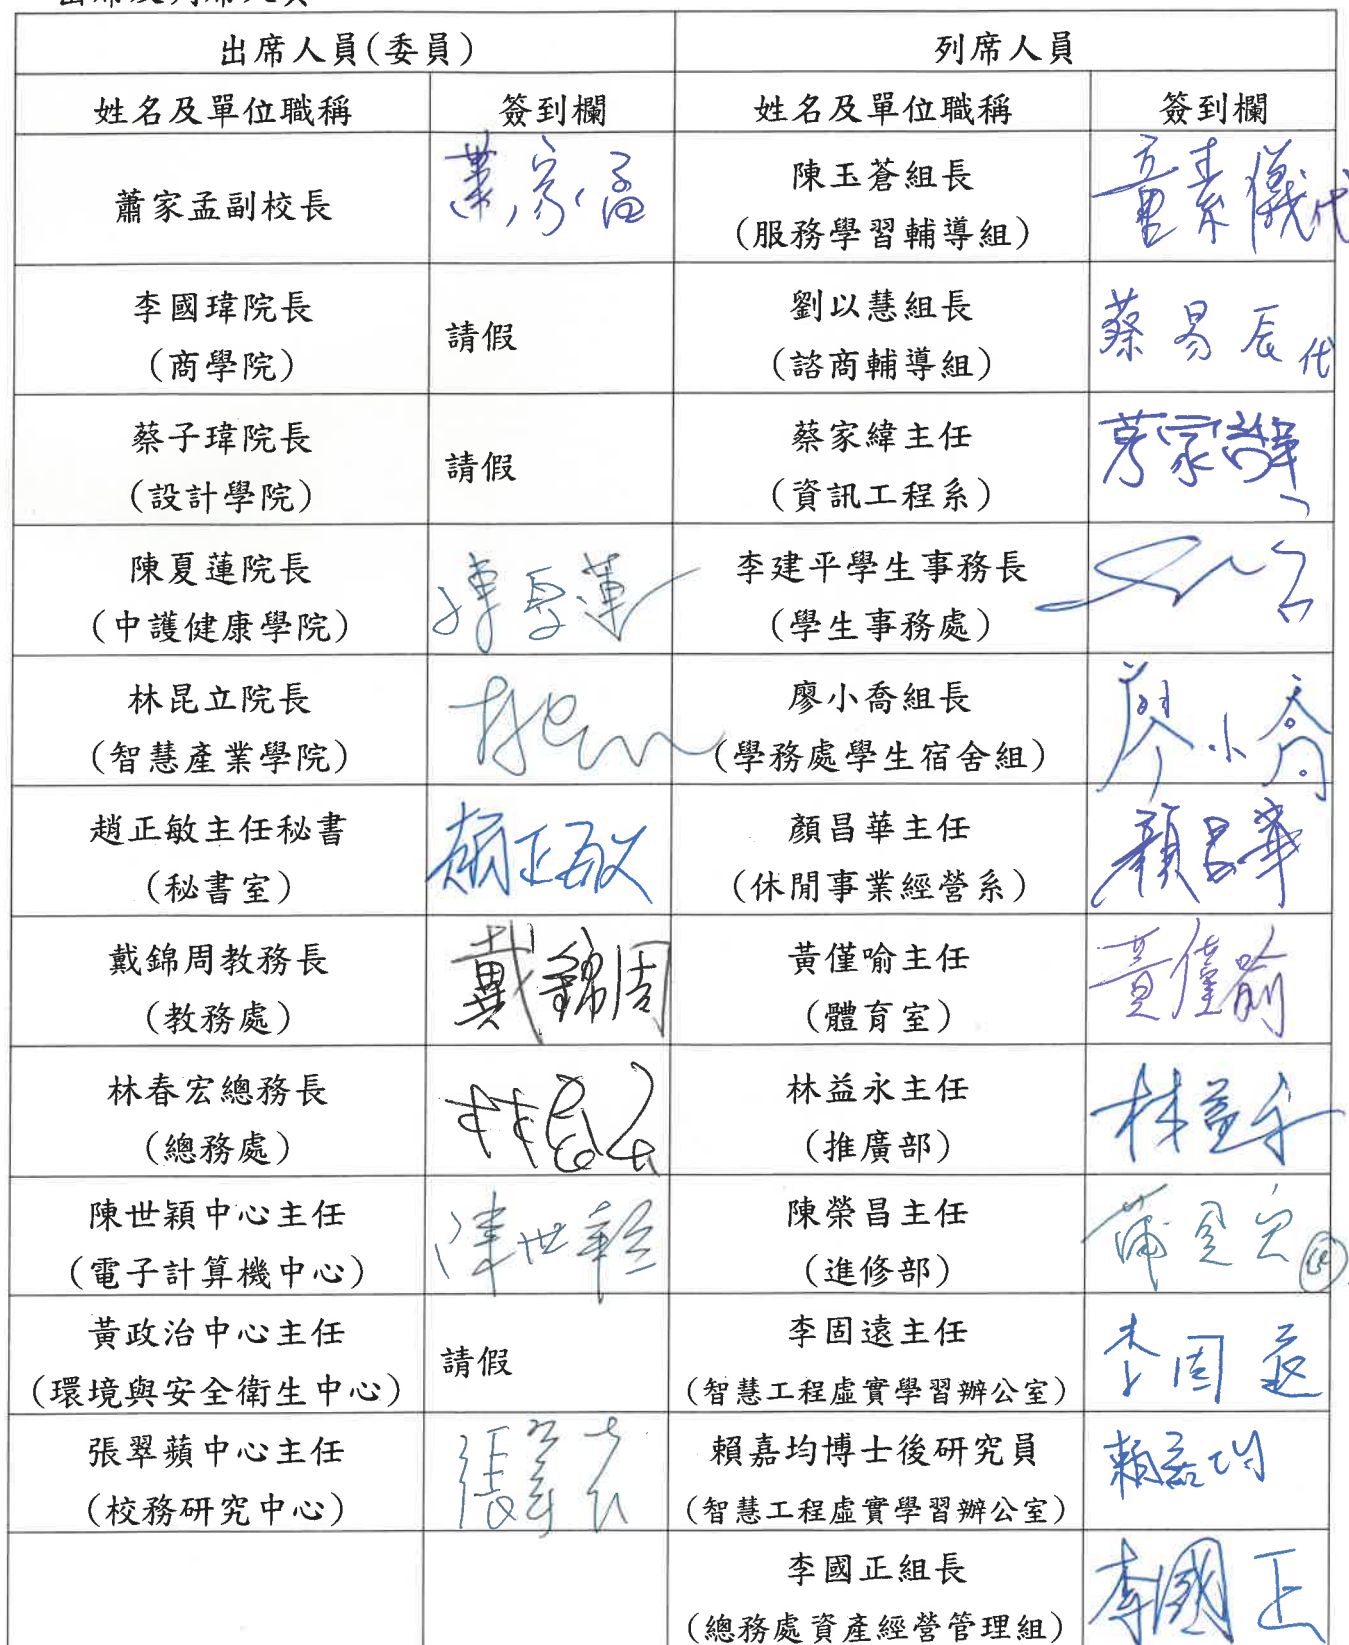 出席人員(委員) 列席人員
姓名及單位職稱 簽到欄 姓名及單位職稱 簽到欄
蕭家孟副校長 蕭家孟 陳玉蒼組長
(服務學習輔導組) 童素儀代
李國瑋院長
(商學院) 請假 劉以慧組長
(諮商輔導組) 蔡易辰代
蔡子瑋院長
(設計學院) 請假 蔡家緯主任
(資訊工程系)
陳夏蓮院長
(中護健康學院) 陳夏蓮 李建平學生事務長
(學生事務處)
林昆立院長
(智慧產業學院) 廖小喬組長
(學務處學生宿舍組) 廖小喬
趙正敏主任秘書
(秘書室) 趙正敏 顏昌華主任
(休閒事業經營系) 顏昌華
戴錦周教務長
(教務處) 戴錦周 黃僅喻主任
(體育室) 黃僅喻
林春宏總務長
(總務處) 林春宏 林益永主任
(推廣部) 林益永
陳世穎中心主任
(電子計算機中心) 陳世穎 陳榮昌主任
(進修部)
黃政治中心主任
(環境與安全衛生中心) 請假 李固遠主任
(智慧工程虛實學習辦公室) 李固遠
張翠蘋中心主任
(校務研究中心) 賴嘉均博士後研究員
(智慧工程虛實學習辦公室) 賴嘉均
李國正組長
(總務處資產經營管理組) 李國正